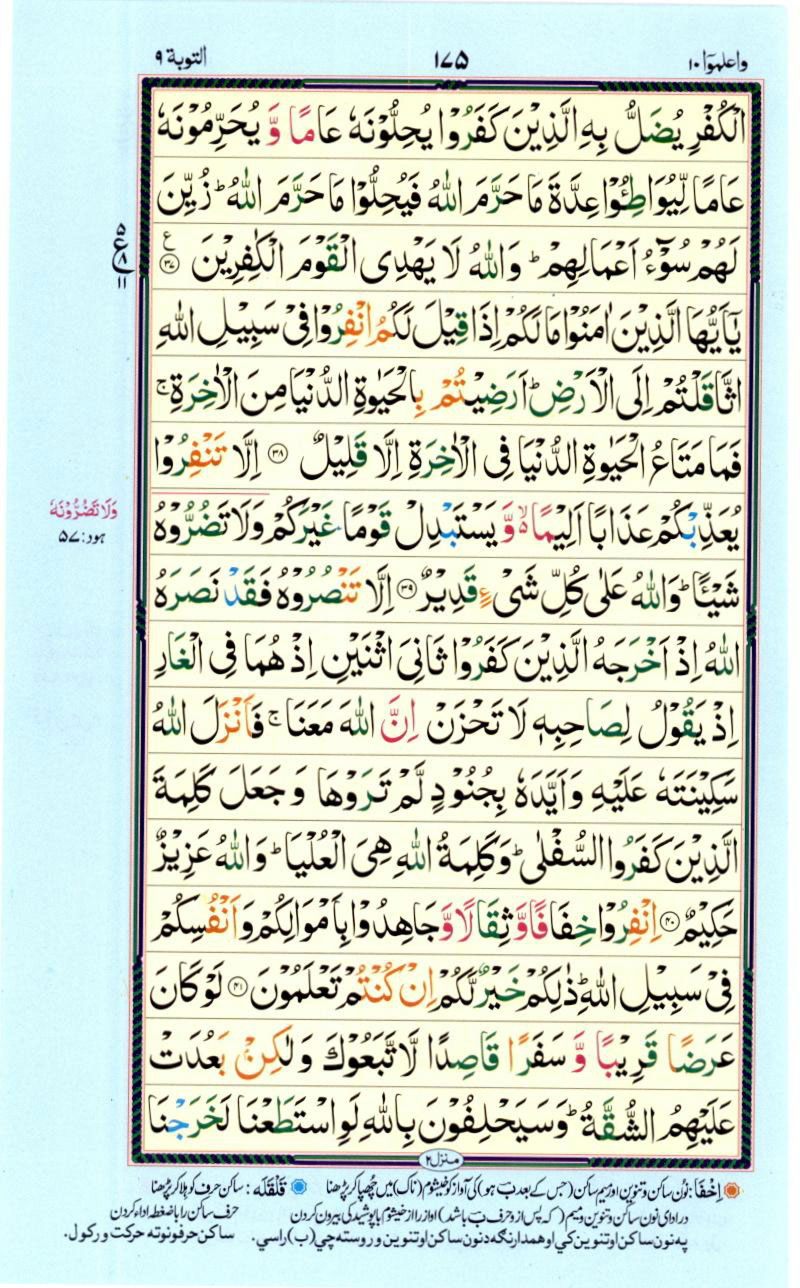 التوبة ۹
۱۷۵
واعلموا ۱۰
الْكُفْرِ يُضَلُّ بِهِ الَّذِيْنَ كَفَرُوْا يُحِلُّوْنَهٗ عَامًا وَّ يُحَرِّمُوْنَهٗ
عَامًا لِّيُوَاطِـُٔوْا عِدَّةَ مَا حَرَّمَ اللّٰهُ فَيُحِلُّوْا مَا حَرَّمَ اللّٰهُ ؕ زُيِّنَ
لَهُمْ سُوْٓءُ اَعْمَالِهِمْ ؕ وَاللّٰهُ لَا يَهْدِى الْقَوْمَ الْكٰفِرِيْنَ ۟ع ۳۷
۵
ع ۸
۱۱
يٰۤاَيُّهَا الَّذِيْنَ اٰمَنُوْا مَا لَكُمْ اِذَا قِيْلَ لَكُمُ انْفِرُوْا فِىْ سَبِيْلِ اللّٰهِ
اثَّاقَلْتُمْ اِلَى الْاَرْضِ ؕ اَرَضِيْتُمْ بِالْحَيٰوةِ الدُّنْيَا مِنَ الْاٰخِرَةِ ۚ
فَمَا مَتَاعُ الْحَيٰوةِ الدُّنْيَا فِى الْاٰخِرَةِ اِلَّا قَلِيْلٌ ۳۸ اِلَّا تَنْفِرُوْا
يُعَذِّبْكُمْ عَذَابًا اَلِيْمًا ۙ۬ وَّ يَسْتَبْدِلْ قَوْمًا غَيْرَكُمْ وَلَا تَضُرُّوْهُ
وَلَا تَضُرُّوْنَهٗ
هود: ۵۷
شَيْـًٔا ؕ وَاللّٰهُ عَلٰى كُلِّ شَىْءٍ قَدِيْرٌ ۳۹ اِلَّا تَنْصُرُوْهُ فَقَدْ نَصَرَهُ
اللّٰهُ اِذْ اَخْرَجَهُ الَّذِيْنَ كَفَرُوْا ثَانِىَ اثْنَيْنِ اِذْ هُمَا فِى الْغَارِ
اِذْ يَقُوْلُ لِصَاحِبِهٖ لَا تَحْزَنْ اِنَّ اللّٰهَ مَعَنَا ۚ فَاَنْزَلَ اللّٰهُ
سَكِيْنَتَهٗ عَلَيْهِ وَاَيَّدَهٗ بِجُنُوْدٍ لَّمْ تَرَوْهَا وَجَعَلَ كَلِمَةَ
الَّذِيْنَ كَفَرُوا السُّفْلٰى ؕ وَكَلِمَةُ اللّٰهِ هِىَ الْعُلْيَا ؕ وَاللّٰهُ عَزِيْزٌ
حَكِيْمٌ ۴۰ اِنْفِرُوْا خِفَافًا وَّثِقَالًا وَّجَاهِدُوْا بِاَمْوَالِكُمْ وَاَنْفُسِكُمْ
فِىْ سَبِيْلِ اللّٰهِ ؕ ذٰلِكُمْ خَيْرٌ لَّكُمْ اِنْ كُنْتُمْ تَعْلَمُوْنَ ۴۱ لَوْ كَانَ
عَرَضًا قَرِيْبًا وَّ سَفَرًا قَاصِدًا لَّاتَّبَعُوْكَ وَلٰكِنْۢ بَعُدَتْ
عَلَيْهِمُ الشُّقَّةُ ؕ وَسَيَحْلِفُوْنَ بِاللّٰهِ لَوِ اسْتَطَعْنَا لَخَرَجْنَا
منزل ۲
اِخْفَا: نون ساکن و تنوین اور میم ساکن (جس کے بعد ب ہو) کی آواز کو خیشوم (ناک) میں چھپا کر پڑھنا قَلْقَلَہ: ساکن حرف کو ہلا کر پڑھنا
در ادای نون ساکن و تنوین و میم (که پس از و حرف ب باشد) اواز را از خیشوم با پوشیدگی بیرون کردن حرف ساکن را با ضغطه اداء کردن
په نون ساکن او تنوین کي او همدارنګه د نون ساکن او تنوین وروسته چي (ب) راسي. ساکن حرفونو ته حرکت ورکول.